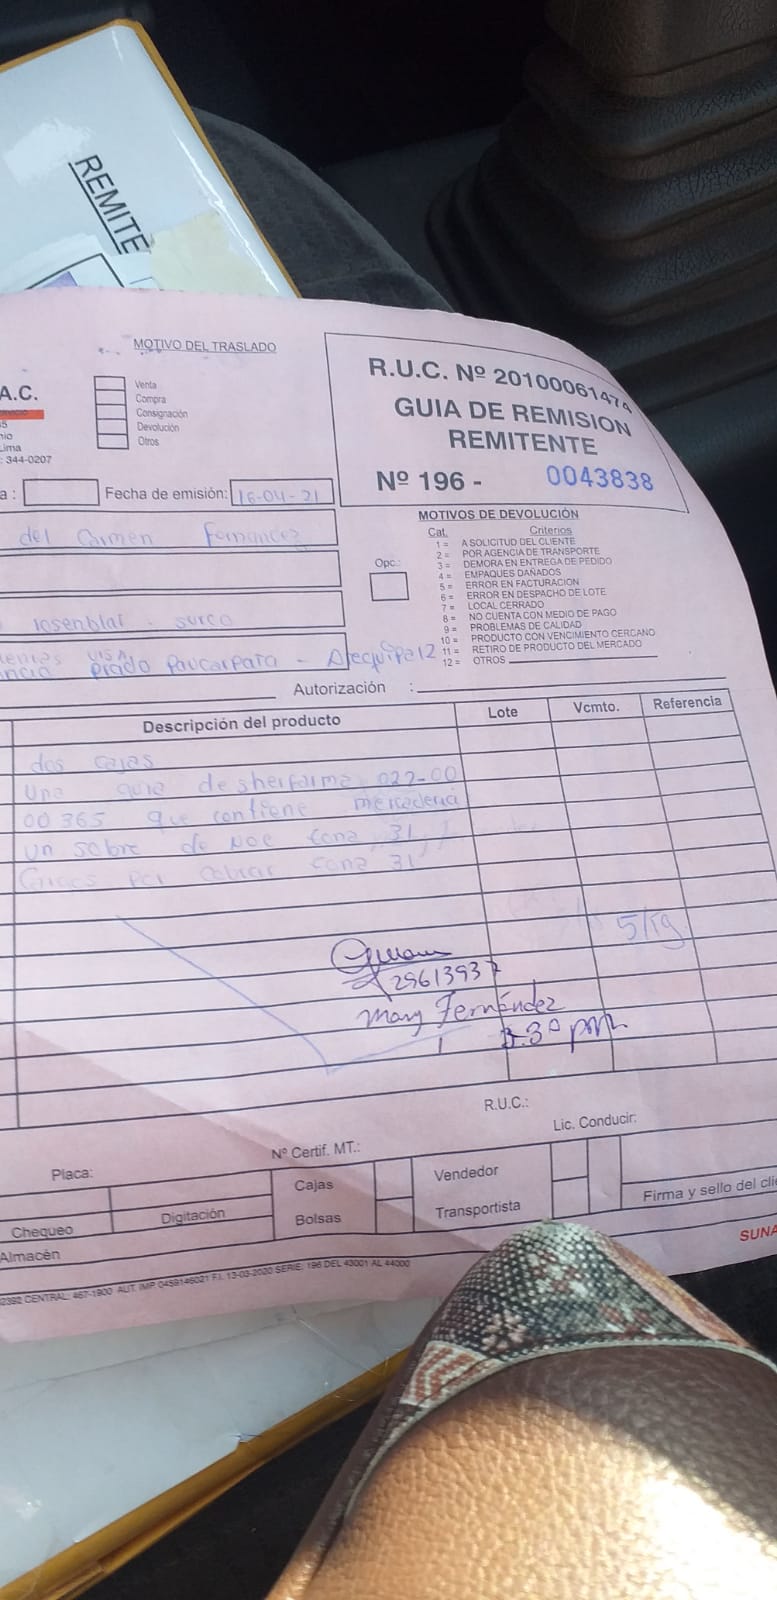 REMITE
MOTIVO DEL TRASLADO
Venta
Compra
Consignación
Devolución
Otros
A.C.
Lima
: 344-0207
R.U.C. Nº 20100061474
GUIA DE REMISION
REMITENTE
Nº 196 - 0043838
a : Fecha de emisión: 16-04-21
del Carmen Fernandez
surco
prado Paucarpata - Arequipa 12
MOTIVOS DE DEVOLUCIÓN
Cat. Criterios
1 = A SOLICITUD DEL CLIENTE
2 = POR AGENCIA DE TRANSPORTE
3 = DEMORA EN ENTREGA DE PEDIDO
4 = EMPAQUES DAÑADOS
5 = ERROR EN FACTURACION
6 = ERROR EN DESPACHO DE LOTE
7 = LOCAL CERRADO
8 = NO CUENTA CON MEDIO DE PAGO
9 = PROBLEMAS DE CALIDAD
10 = PRODUCTO CON VENCIMIENTO CERCANO
11 = RETIRO DE PRODUCTO DEL MERCADO
12 = OTROS
Opc.:
Autorización :
Descripción del producto Lote Vcmto. Referencia
dos cajas
una guia de sherfarma 022-00
00365 que contiene mercaderia
un sobre de NOE zona 31
por cobrar zona 31
5/Kg
29613937
Mary Fernández
3.30 pm
R.U.C.:
Nº Certif. MT.: Lic. Conducir:
Placa: Cajas Vendedor
Chequeo Digitación Bolsas Transportista Firma y sello del cli
Almacén
SUNA
2392 CENTRAL: 467-1900 AUT. IMP. 0459146021 F.I. 13-03-2020 SERIE: 196 DEL 43001 AL 44000